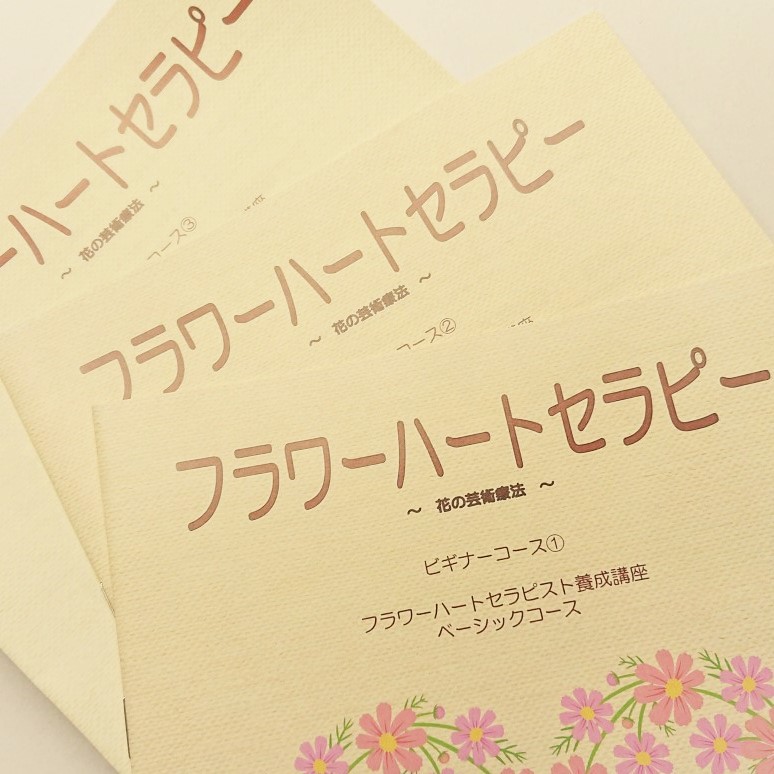 ーハートセラピー
～ 花の芸術療法 ～
コース③
フラワーハートセラピー
～ 花の芸術療法 ～
コース②
フラワーハートセラピー
～ 花の芸術療法 ～
ビギナーコース①
フラワーハートセラピスト養成講座
ベーシックコース